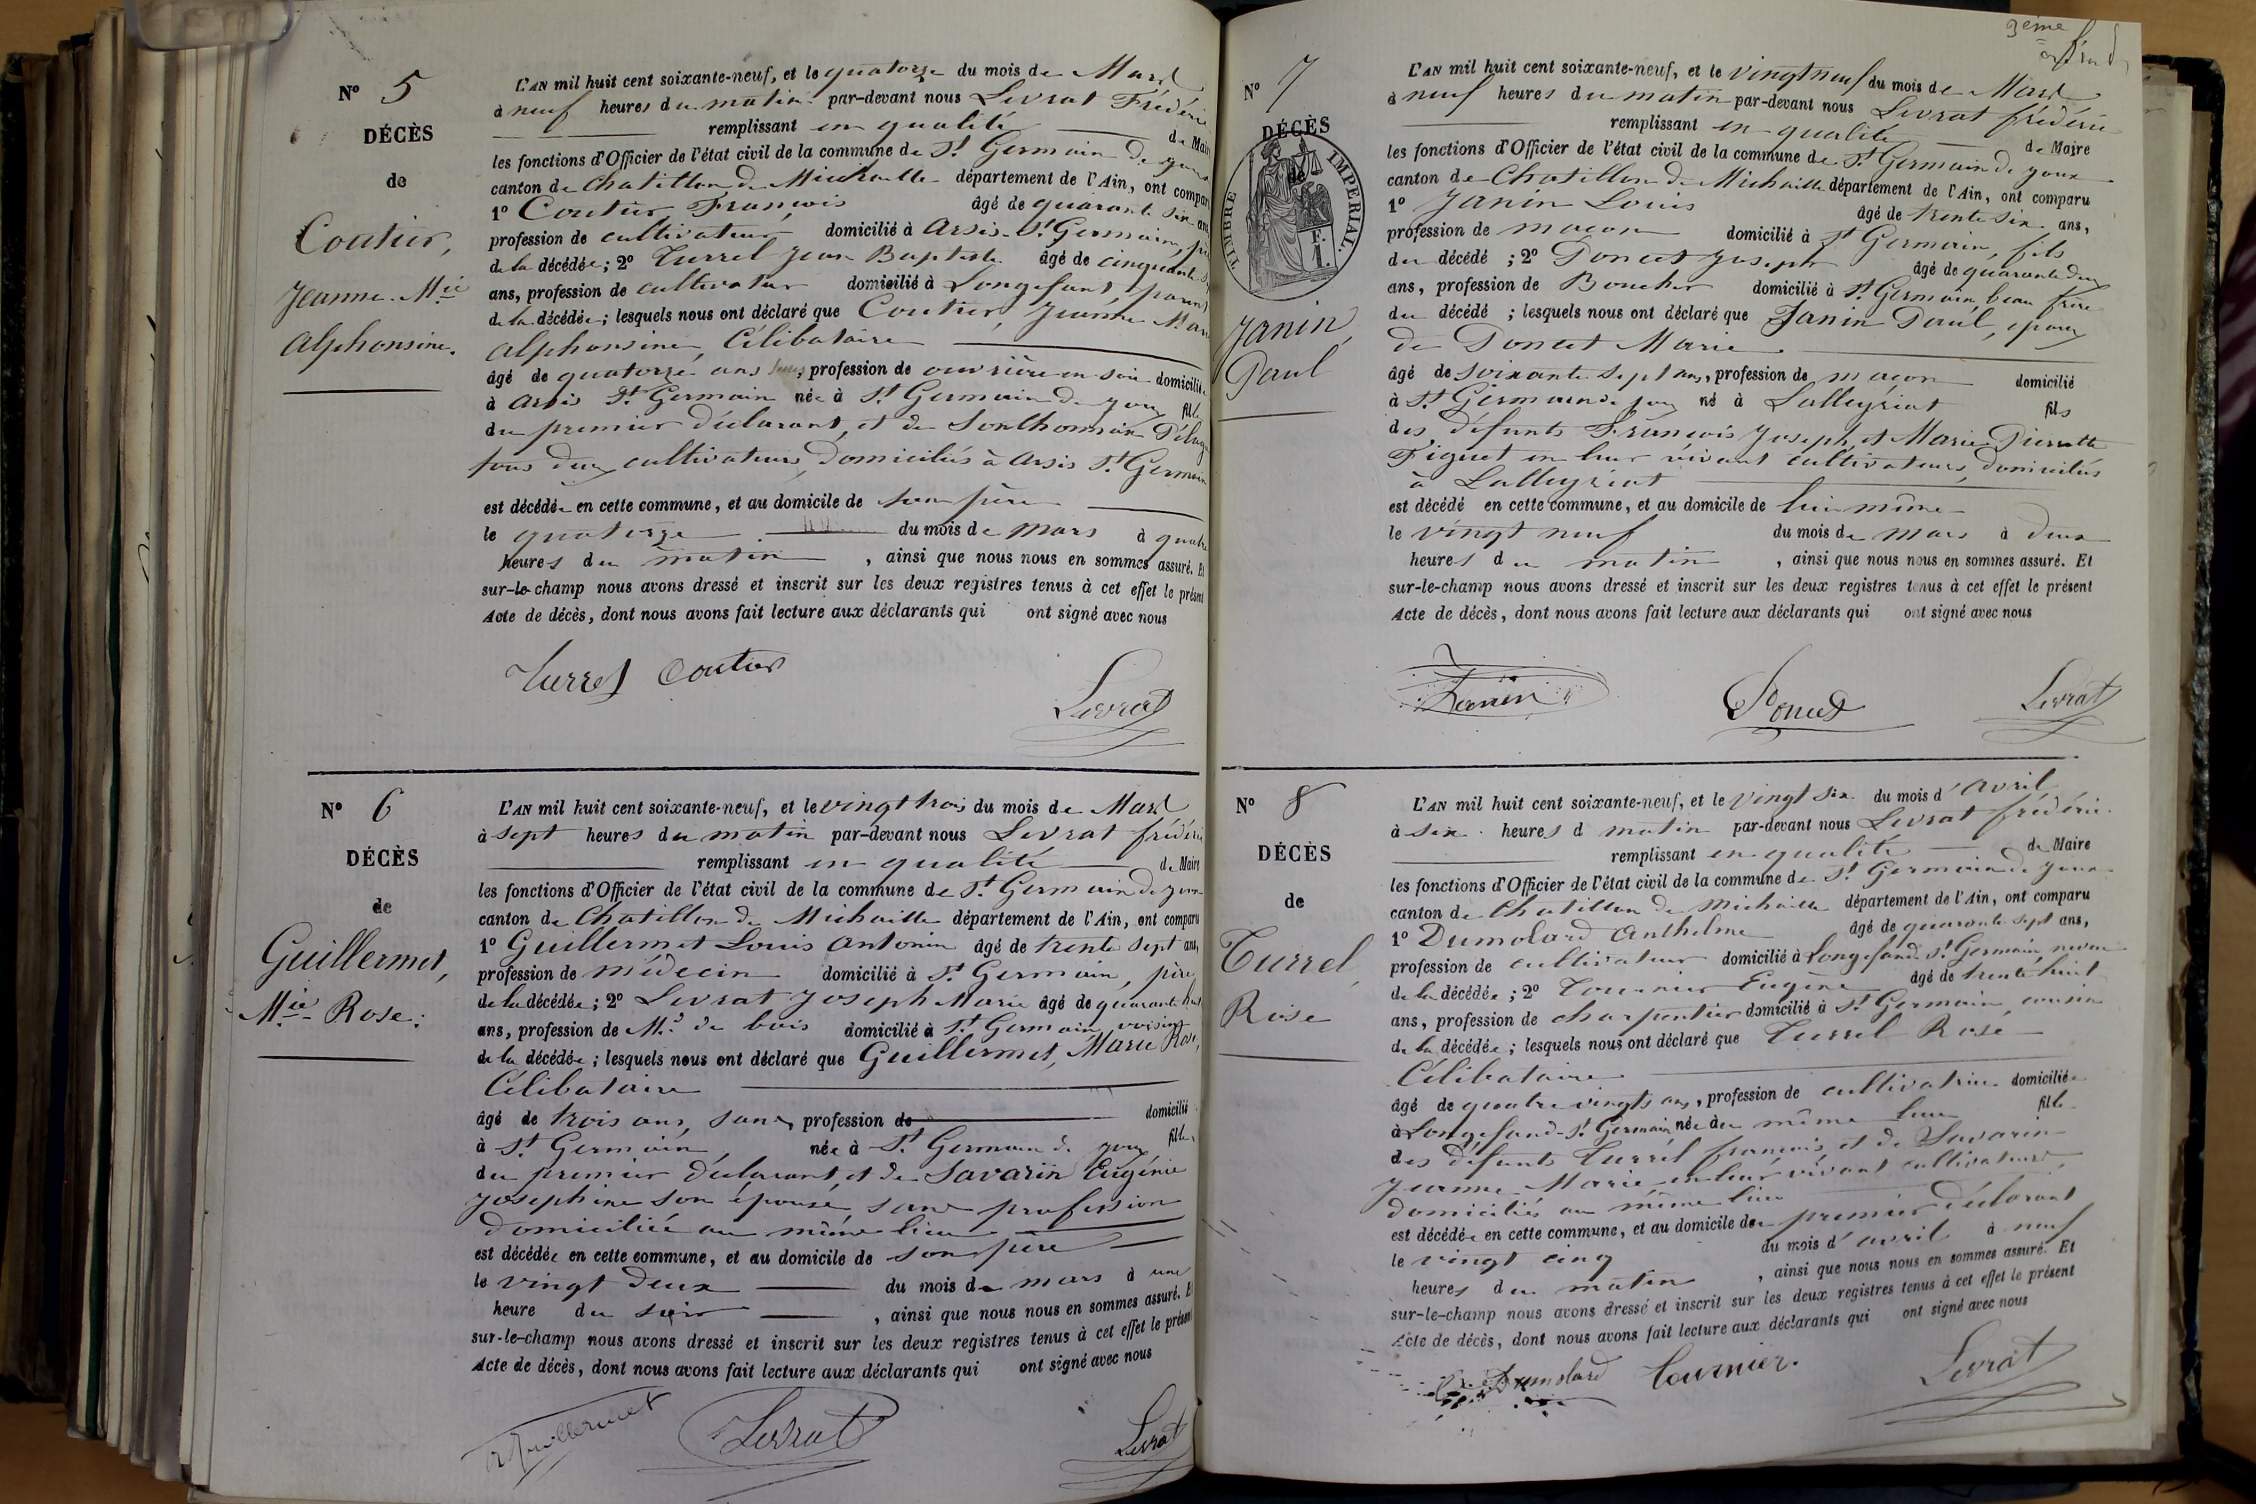 N° 5
DÉCÈS
de
Coutier,
Jeanne Mie
Alphonsine.
L'AN mil huit cent soixante-neuf, et le quatorze du mois de Mars
à neuf heures du matin par-devant nous Levrat Frédéric
remplissant en qualité de Maire
les fonctions d'Officier de l'état civil de la commune de St Germain de Joux
canton de Chatillon de Michaille département de l'Ain, ont comparu
1° Coutier François âgé de quarante six ans
profession de cultivateur domicilié à Arsis St Germain, père
de la décédée; 2° Turrel Jean Baptiste âgé de cinquante
ans, profession de cultivateur domicilié à Longefand parent
de la décédée; lesquels nous ont déclaré que Coutier, Jeanne Marie
Alphonsine, Célibataire
âgé de quatorze ans profession de ouvrière en soie domiciliée
à Arsis St Germain née à St Germain de Joux fille
du premier déclarant, et de Sonthonnax
tous deux cultivateurs, domiciliés à Arsis St Germain
est décédée en cette commune, et au domicile de son père
le quatorze du mois de mars à quatre
heures du matin, ainsi que nous nous en sommes assuré. Et
sur-le-champ nous avons dressé et inscrit sur les deux registres tenus à cet effet le présent
Acte de décès, dont nous avons fait lecture aux déclarants qui ont signé avec nous
Turrel Coutier
Levrat
N° 6
DÉCÈS
de
Guillermet,
Mie Rose.
L'AN mil huit cent soixante-neuf, et le vingt trois du mois de Mars
à sept heures du matin par-devant nous Levrat frédéric
remplissant en qualité de Maire
les fonctions d'Officier de l'état civil de la commune de St Germain de Joux
canton de Chatillon de Michaille département de l'Ain, ont comparu
1° Guillermet Louis Antonin âgé de trente sept ans,
profession de médecin domicilié à St Germain, père
de la décédée; 2° Levrat Joseph Marie âgé de quarante huit
ans, profession de Md de bois domicilié à St Germain, voisin
de la décédée; lesquels nous ont déclaré que Guillermet, Marie Rose,
Célibataire
âgé de trois ans, sans profession de domicilié
à St Germain, née à St Germain de Joux fille
du premier déclarant, et de Savarin Eugénie
Josephine son épouse sans profession
domiciliée au même lieu
est décédée en cette commune, et au domicile de son père
le vingt deux du mois de mars à une
heure du soir, ainsi que nous nous en sommes assuré. Et
sur-le-champ nous avons dressé et inscrit sur les deux registres tenus à cet effet le présent
Acte de décès, dont nous avons fait lecture aux déclarants qui ont signé avec nous
Guillermet Levrat Levrat
3ème
N° 7
DÉCÈS
de
TIMBRE IMPERIAL.
1 F.
Janin,
Paul
L'AN mil huit cent soixante-neuf, et le vingt neuf du mois de Mars
à neuf heures du matin par-devant nous Levrat frédéric
remplissant en qualité de Maire
les fonctions d'Officier de l'état civil de la commune de St Germain de Joux
canton de Chatillon de Michaille département de l'Ain, ont comparu
1° Janin Louis âgé de trente six ans,
profession de maçon domicilié à St Germain, fils
du décédé; 2° Poncet Joseph âgé de quarante deux
ans, profession de Boucher domicilié à St Germain beau frère
du décédé; lesquels nous ont déclaré que Janin Paul, époux
de Poncet Marie
âgé de soixante sept ans, profession de maçon domicilié
à St Germain de Joux né à Lalleyriat fils
des défunts François Joseph, et Marie Pierrette
Piquet en leur vivant cultivateurs, domiciliés
à Lalleyriat
est décédé en cette commune, et au domicile de lui même
le vingt neuf du mois de mars à deux
heures du matin, ainsi que nous nous en sommes assuré. Et
sur-le-champ nous avons dressé et inscrit sur les deux registres tenus à cet effet le présent
Acte de décès, dont nous avons fait lecture aux déclarants qui ont signé avec nous
Janin Poncet Levrat
N° 8
DÉCÈS
de
Turrel,
Rose
L'AN mil huit cent soixante-neuf, et le vingt six du mois d'avril
à six heures d matin par-devant nous Levrat frédéric
remplissant en qualité de Maire
les fonctions d'Officier de l'état civil de la commune de St Germain de Joux
canton de Chatillon de Michaille département de l'Ain, ont comparu
1° Dumolard Anthelme âgé de quarante sept ans,
profession de cultivateur domicilié à Longefand St Germain, neveu
de la décédée; 2° Tournier Eugène âgé de trente huit
ans, profession de charpentier domicilié à St Germain, cousin
de la décédée; lesquels nous ont déclaré que Turrel Rose
Célibataire
âgé de quatre vingts ans, profession de cultivatrice domiciliée
à Longefand St Germain née au même lieu fille
des défunts Turrel françois, et de Savarin
Jeanne Marie en leur vivant cultivateurs,
domiciliés au même lieu
est décédée en cette commune, et au domicile du premier déclarant
le vingt cinq du mois d'avril à neuf
heures du matin, ainsi que nous nous en sommes assuré. Et
sur-le-champ nous avons dressé et inscrit sur les deux registres tenus à cet effet le présent
Acte de décès, dont nous avons fait lecture aux déclarants qui ont signé avec nous
Dumolard Tournier. Levrat